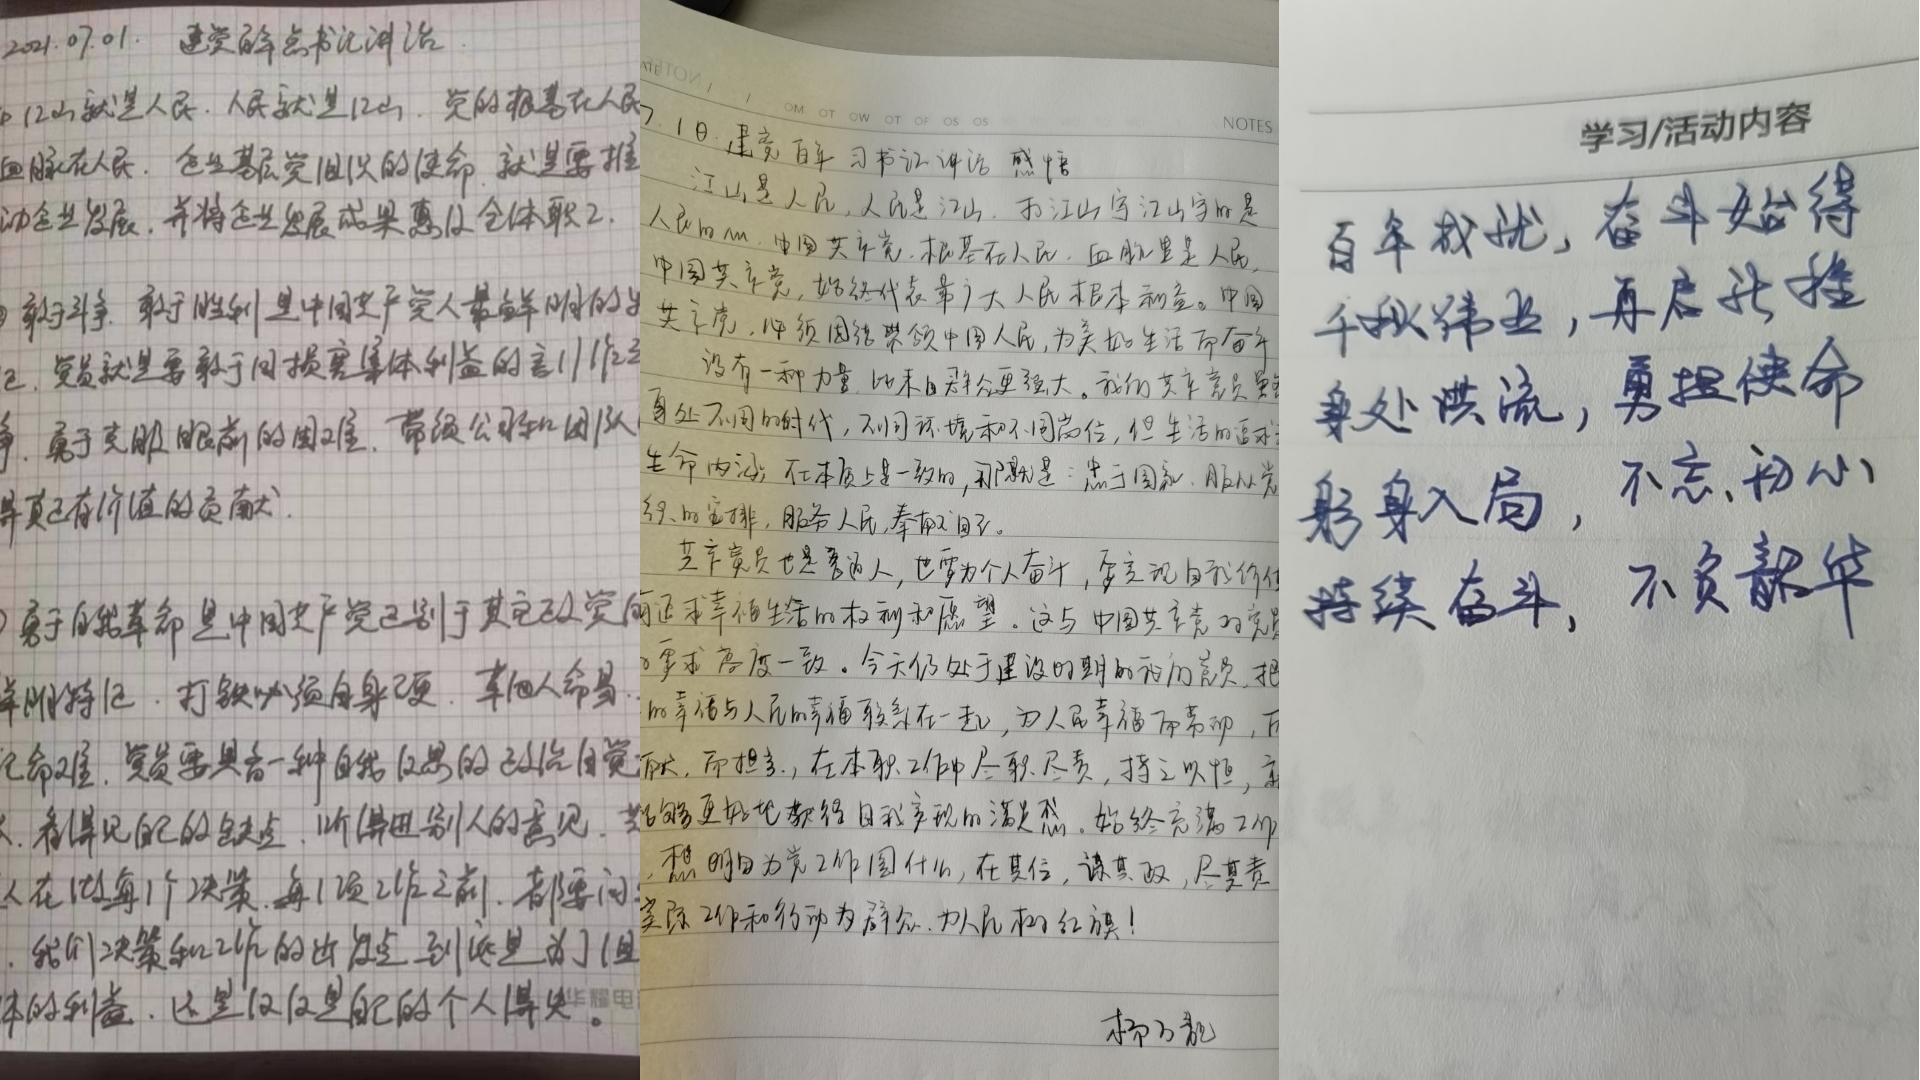 2021.07.01. 建党百年总书记讲话
江山就是人民. 人民就是江山. 党的根基在人民
血脉在人民. 企业基层党组织的使命. 就是要推
动企业发展. 并将企业发展成果惠及全体职工.
敢于斗争. 敢于胜利是中国共产党人最鲜明的
党员就是要敢于同损害集体利益的言行作
争. 勇于克服眼前的困难. 带领公司和团队
真正有价值的贡献.
勇于自我革命是中国共产党区别于其它政党
鲜明特征. 打铁必须自身硬. 革他人命易..
己命难. 党员要具备一种自我反思的政治自觉
看得见自己的缺点. 听得进别人的意见.
人在做每1个决策. 每1项工作之前. 都要问
我们决策和工作的出发点到底是为了
体的利益. 还是仅仅是自己的个人得失。
华耀电
NOTES
7.1日. 建党百年 习书记讲话 感悟
江山是人民, 人民是江山. 打江山守江山守的是
人民的心. 中国共产党. 根基在人民. 血脉里是人民.
中国共产党, 始终代表最广大人民根本利益。中国
共产党, 必须团结带领中国人民, 为美好生活而奋斗
没有一种力量. 比来自群众更强大。我们共产党员虽然
身处不同的时代, 不同环境和不同岗位, 但生活的追求
生命内涵, 在本质上是一致的, 那就是: 忠于国家. 服从党
织的安排, 服务人民, 奉献自己。
共产党员也是普通人, 也要为个人奋斗, 要实现自我价值
追求幸福生活的权利和愿望。这与中国共产党对党员
要求高度一致。今天仍处于建设时期的我们党员, 把
的幸福与人民的幸福联系在一起, 为人民幸福而劳动,
献, 而担当, 在本职工作中尽职尽责, 持之以恒,
能够更好地获得自我实现的满足感。始终充满工作
想明白为党工作图什么, 在其位, 谋其政, 尽其责
实际工作和行动为群众. 为人民树红旗!
学习/活动内容
百年成就, 奋斗始得
千秋伟业, 再启新程
身处洪流, 勇担使命
躬身入局, 不忘初心
持续奋斗, 不负韶华